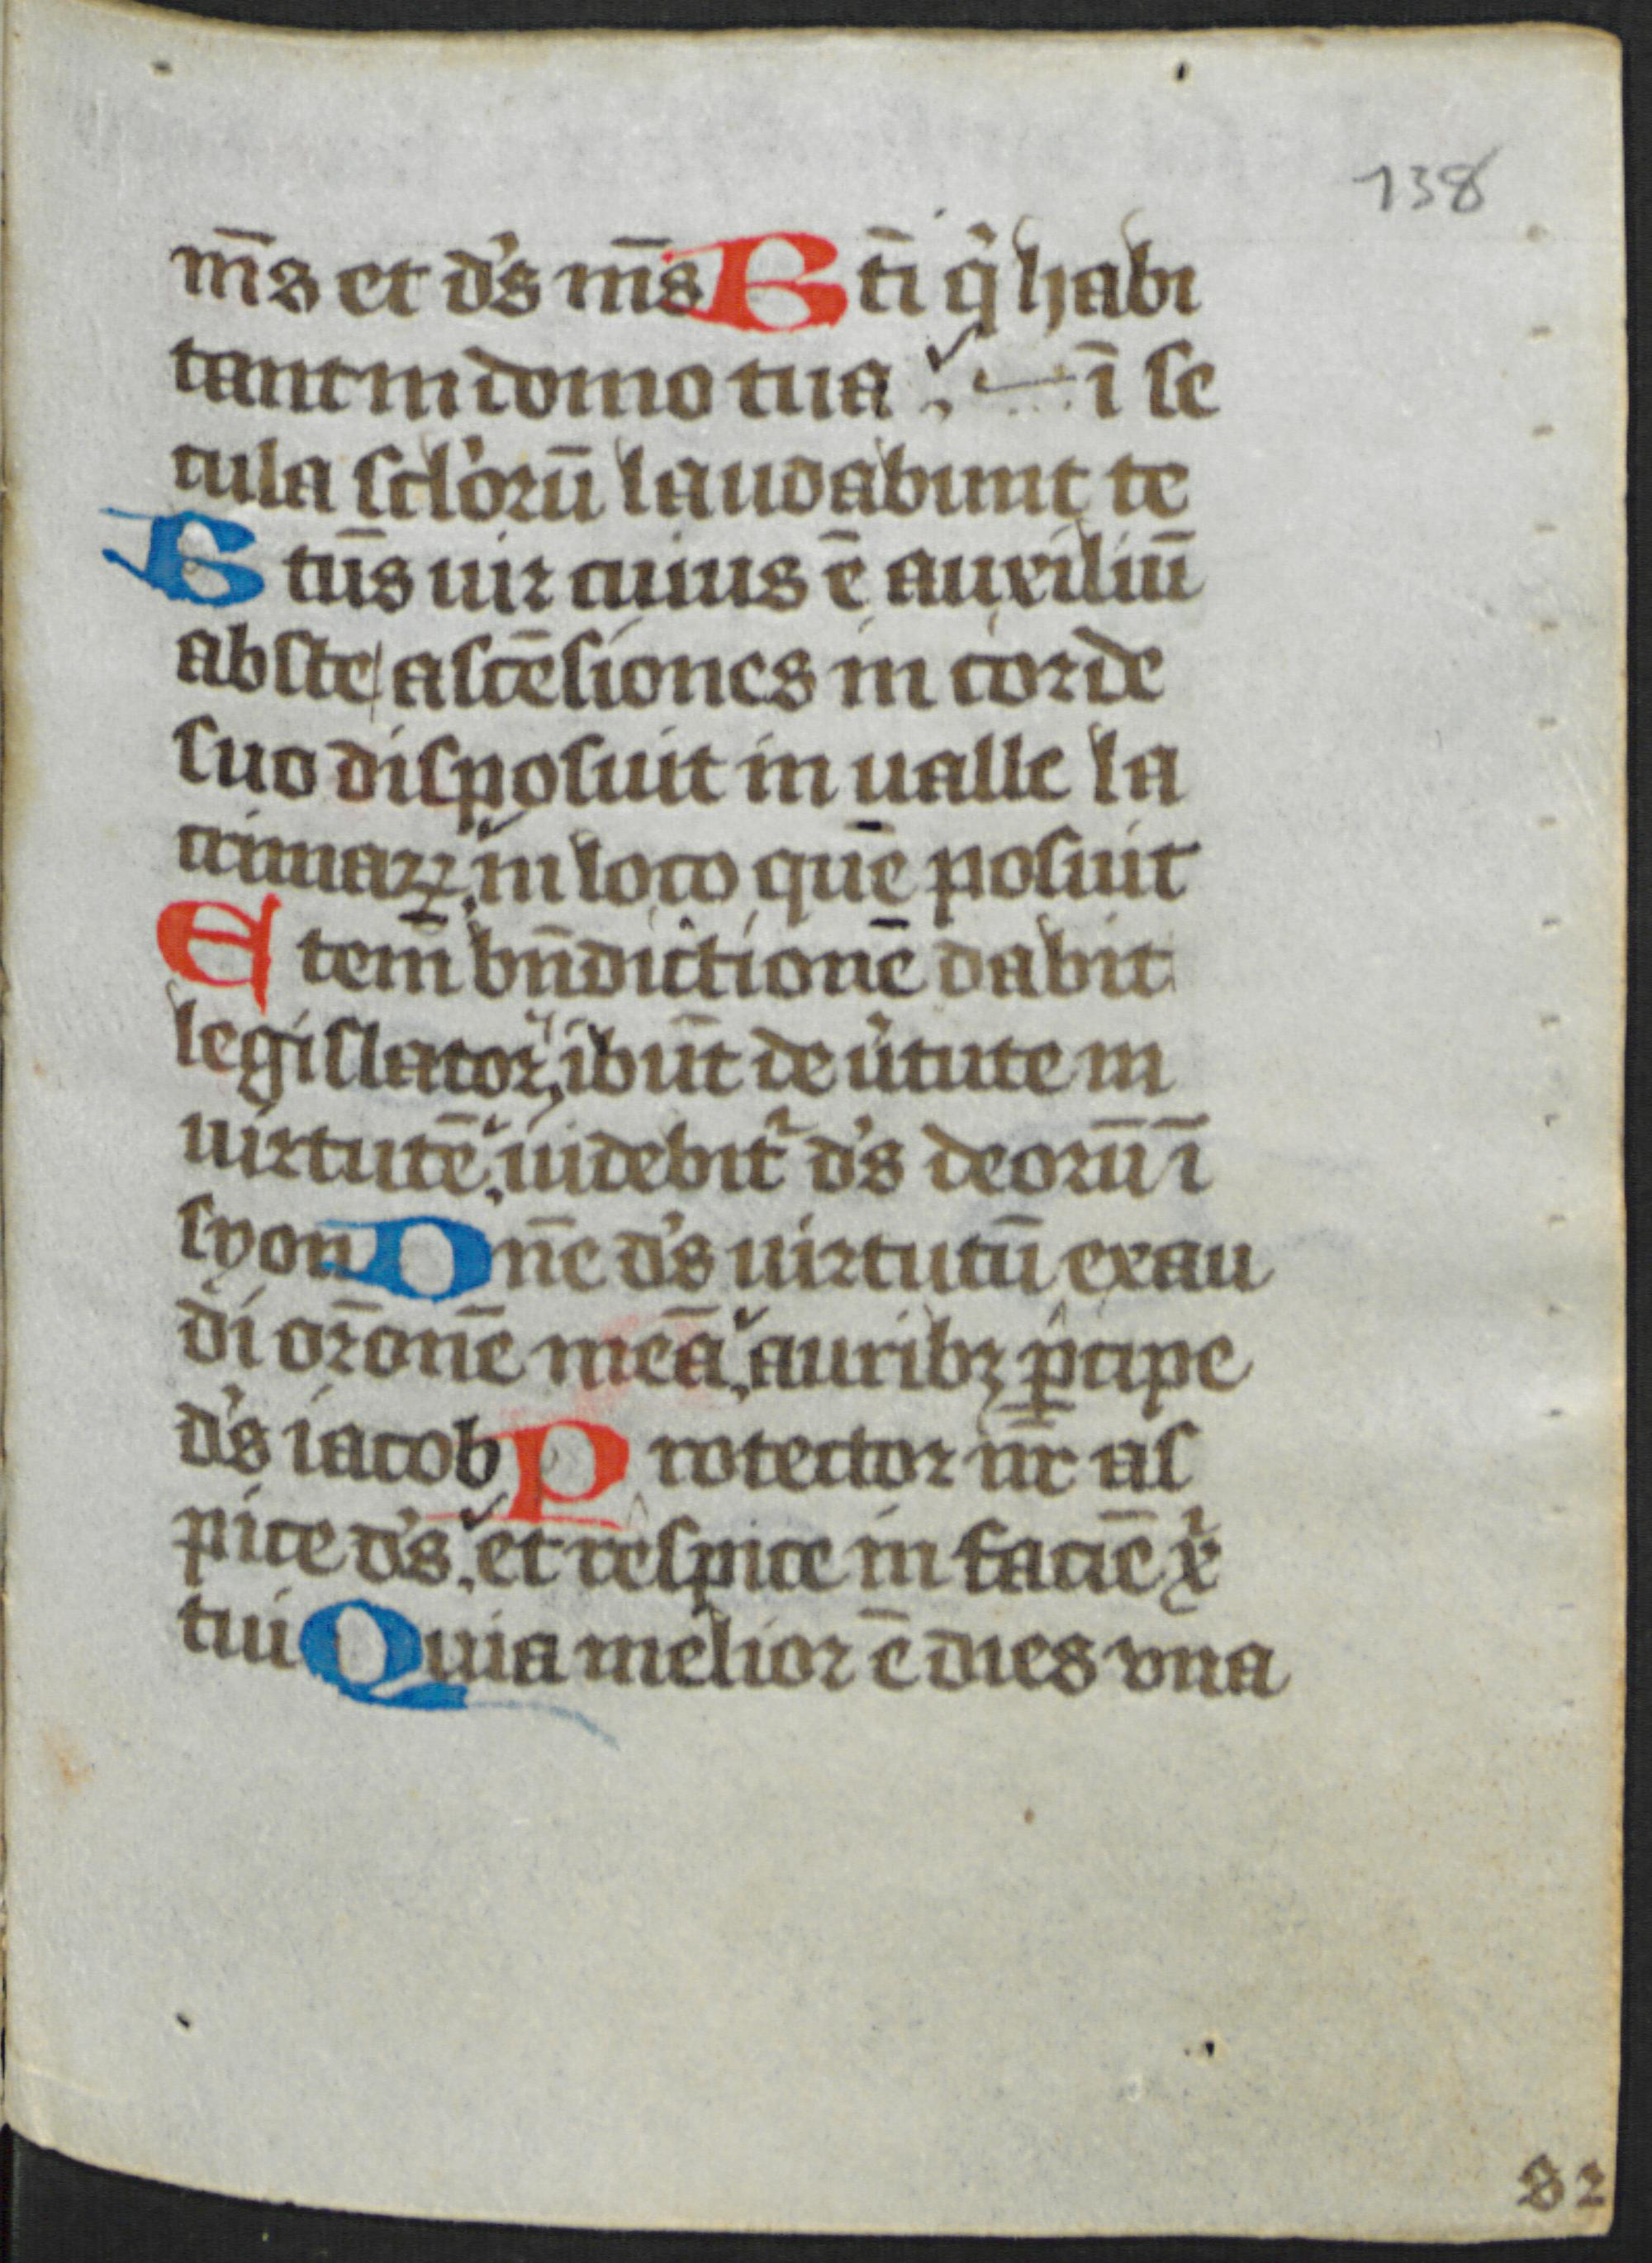 138
m̅s et d's m̅s Bti̅ qͥ habi
tant in domo tua i̅ se
cula sclʼoru̅ laudabunt te
Btu̅s uir cuius e̅ auxiliu̅
abs te asce̅siones in corde
suo disposuit in ualle la
crimaꝝ in loco que̅ posuit
Etem̅ bn̅dictione̅ dabit
legislator ibu̅t de u̍tute in
uirtute̅ uidebit᷑ d's deoru̅ i̅
syon Dn̅e d's uirtutu̅ exau
di or̅one̅ mea̅ auribꝫ ꝑcipe
d's iacob Protector nr̅ as
pice d's et respice in facie̅ xͥ
tui Quia melior e̅ dies vna
82